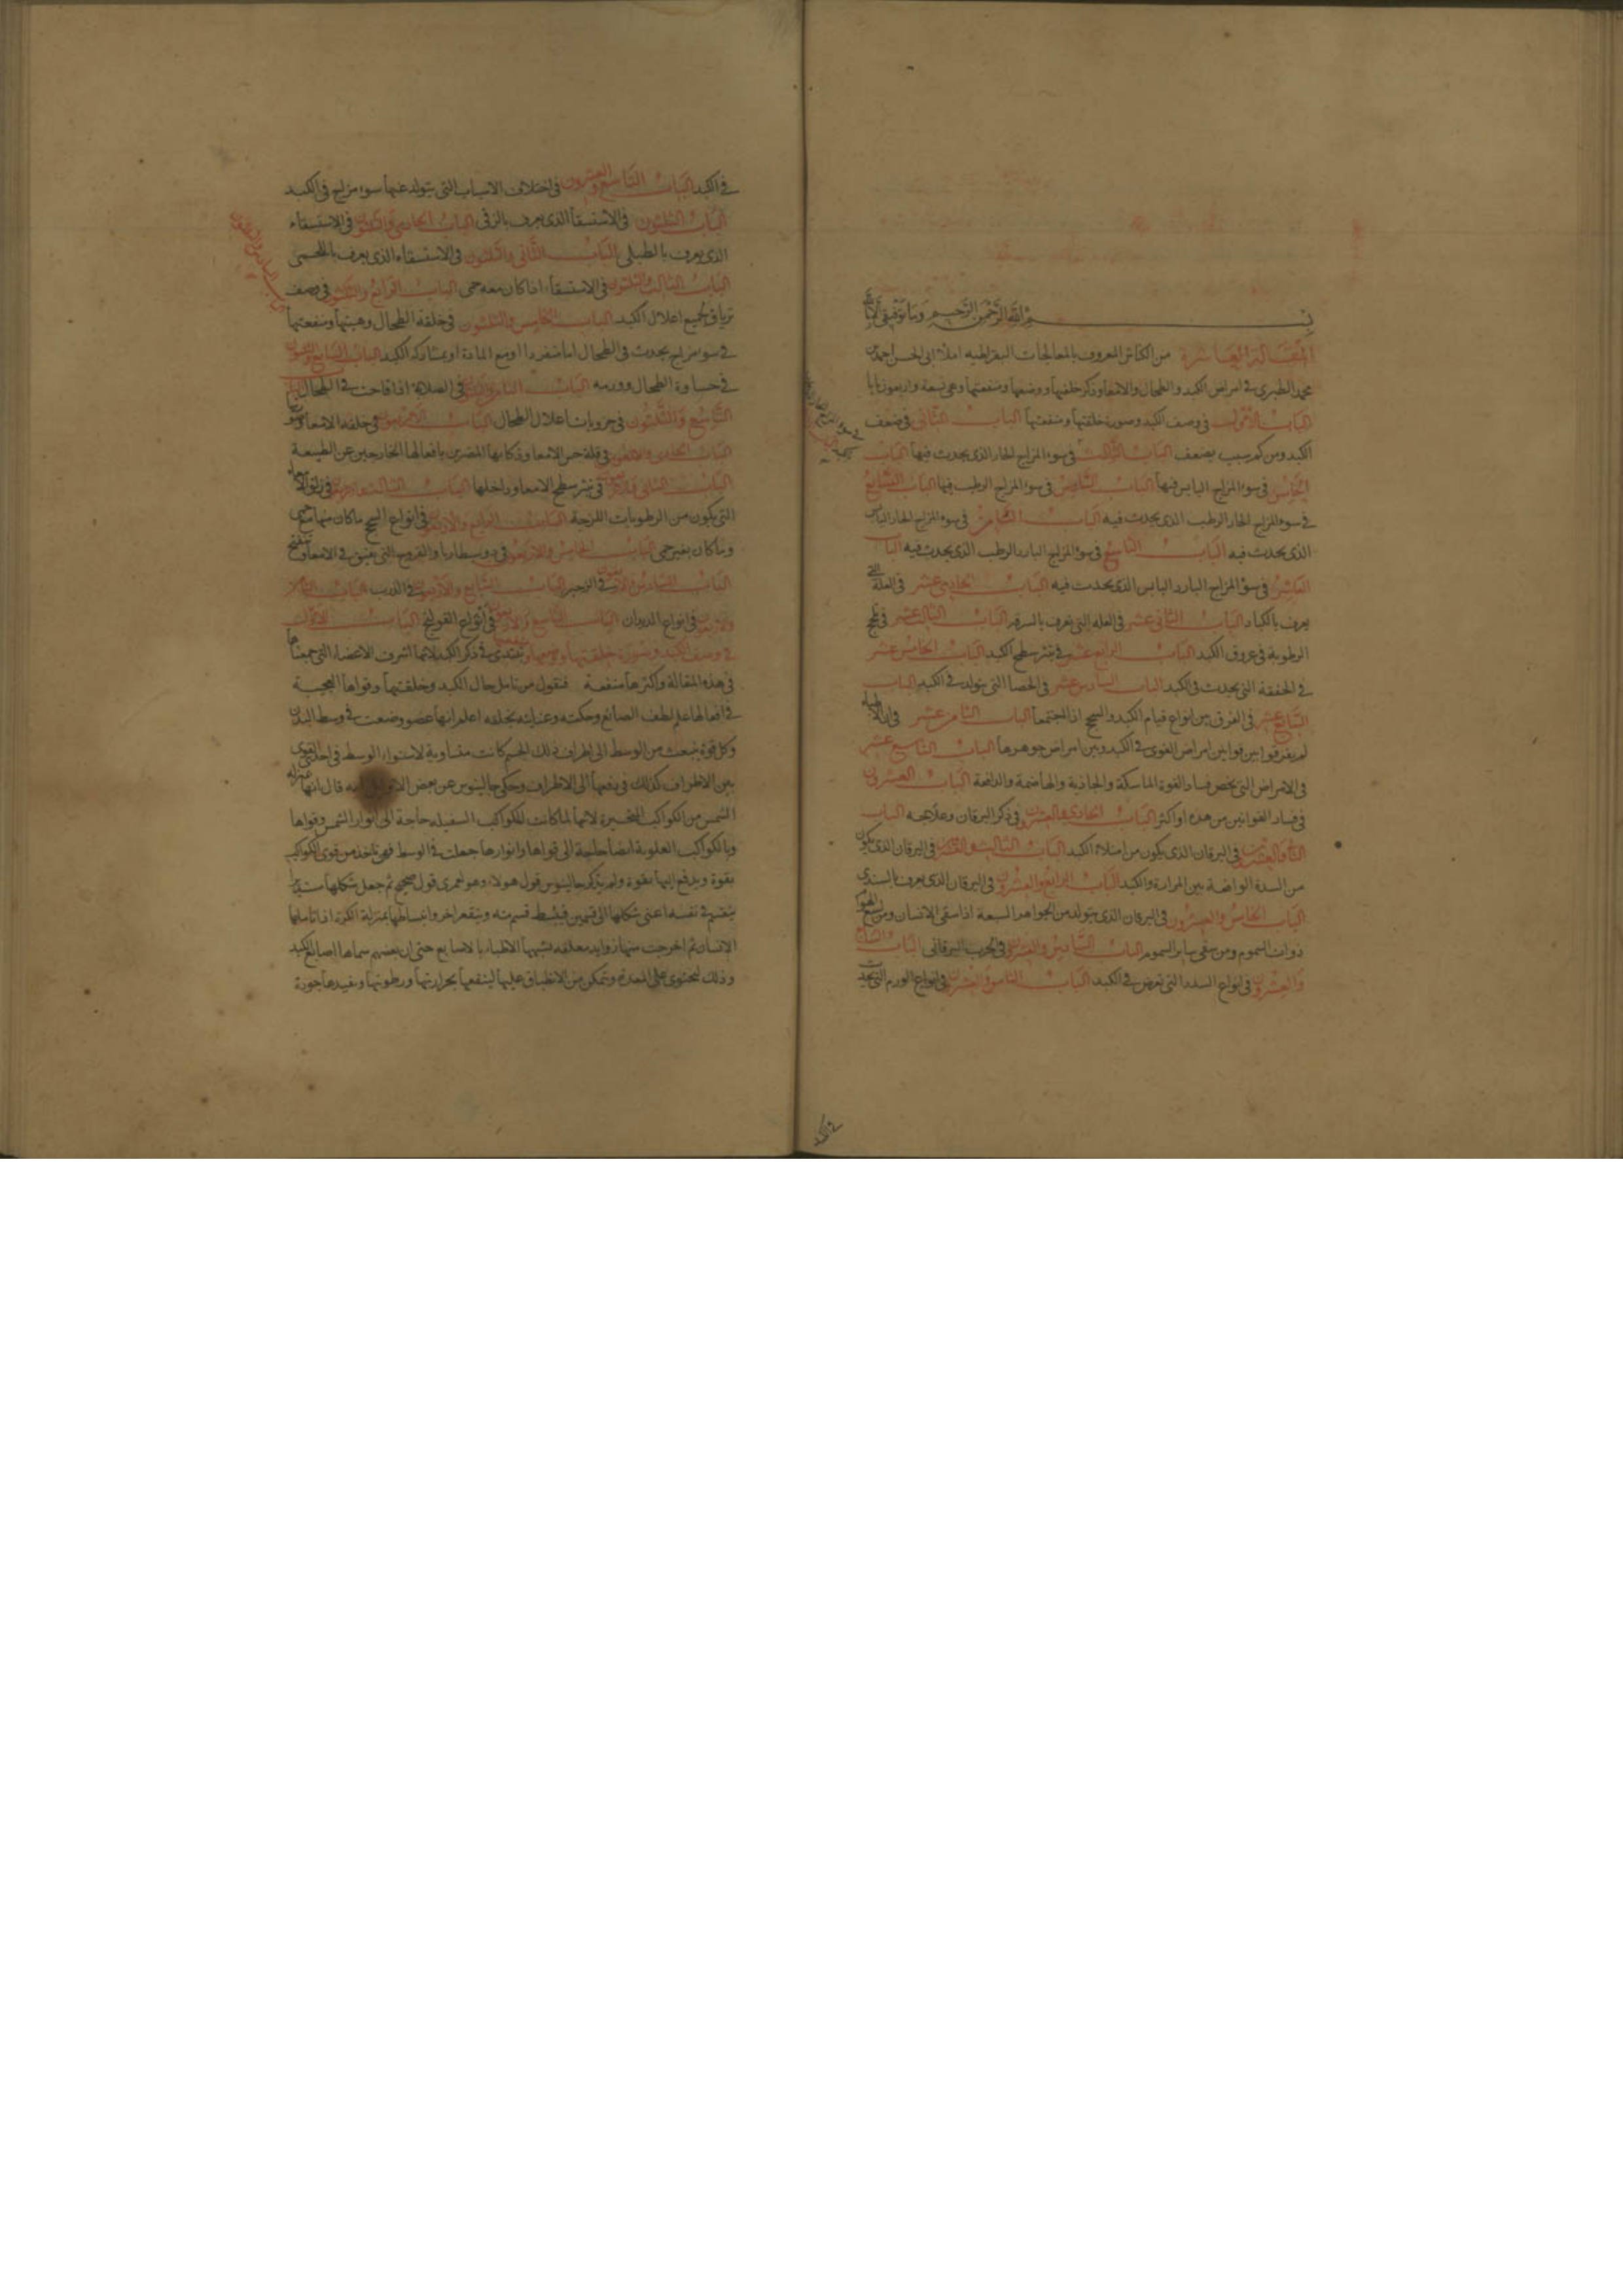 بسم الله الرحمن الرحيم وما توفيقي الا بالله
المقالة العاشرة من الكناش المعروف بالمعالجات البقراطيه املاء ابى الحسن احمد بن
محمد الطبرى فى امراض الكبد والطحال والامعا وذكر خلقتها ووضعها ومنفعتها وهى تسعة واربعون بابا
الباب الاول فى وصف الكبد وصورة خلقتها ومنفعتها الباب الثانى فى ضعف
الكبد ومن كم سبب يضعف الباب الثالث فى سوء المزاج الحار الذى يحدث فيها الباب
الخامس فى سوء المزاج اليابس فيها الباب السادس فى سوء المزاج الرطب فيها الباب السابع
فى سوء المزاج الحار الرطب الذى يحدث فيه الباب الثامن فى سوء المزاج الحار اليابس
الذى يحدث فيه الباب التاسع فى سوء المزاج البارد الرطب الذى يحدث فيه الباب
العاشر فى سوء المزاج البارد اليابس الذى يحدث فيه الباب الحادى عشر فى العلة التى
يعرف بالكباد الباب الثانى عشر فى العله التى تعرف بالسرفه الباب الثالث عشر فى
الرطوبة فى عروق الكبد الباب الرابع عشر فى بثر سطح الكبد الباب الخامس عشر
فى الخفقة التى يحدث فى الكبد الباب السادس عشر فى الحصا التى يتولد فى الكبد الباب
السابع عشر فى الفرق بين انواع قيام الكبد والسحج اذا اجتمعا الباب الثامن عشر فى ان الاطباء
لم يفرقوا بين قوانين امراض القوى فى الكبد وبين امراض جوهرها الباب التاسع عشر
فى الامراض التى يخص فساد القوة الماسكة والجاذبة والهاضمة والدافعة الباب العشرون
فى فساد القوانين من هذه او اكثر الباب الحادى والعشرون فى ذكر اليرقان وعلاجه الباب
والعشرون فى اليرقان الذى يكون من امتلاء الكبد الباب الثالث والعشرون فى اليرقان الذى يكون
من السدة الواقعة بين المرارة والكبد الباب الرابع والعشرون فى اليرقان الذى يعرف بالسندى
الباب الخامس والعشرون فى اليرقان الذى يتولد من الجواهر السبعة اذا سقى الانسان ومن لسع
ذوات السموم ومن سقى ساير السموم الباب السادس والعشرون فى الجرب اليرقانى الباب السابع
والعشرون فى انواع السدد التى تعرض فى الكبد الباب الثامن والعشرون فى انواع الورم التى تحدث
فى الكبد
فى الكبد الباب التاسع والعشرون فى اختلاف الاسباب التى يتولد عنها سوء مزاج فى الكبد
الباب الثلثون فى الاستسقاء الذى يعرف بالزقى الباب الحادى والثلثون فى الاستسقاء
الذى يعرف بالطبلى الباب الثانى والثلثون فى الاستسقاء الذى يعرف باللحمى
الباب الثالث والثلثون فى الاستسقاء اذا كان معه حمى الباب الرابع والثلثون فى وصف
ترياق لجميع اعلال الكبد الباب الخامس والثلثون فى خلقة الطحال وهيئتها ومنفعتها
فى سوء مزاج يحدث فى الطحال اما منفردا او مع المادة او بمشاركة الكبد الباب السابع والثلثون
فى جساوة الطحال وورمه الباب الثامن والثلثون فى الصلابة اذا قاحت فى الطحال الباب
التاسع والثلثون فى جزويات اعلال الطحال الباب الاربعون فى خلقة الامعا
الباب الحادى والاربعون فى قلة حس الامعا وذكائها المضرين بافعالها الخارجين عن الطبيعة
الباب الثانى والاربعون فى بثر سطح الامعا وداخلها الباب الثالث والاربعون فى زلق الامعاء
التى يكون من الرطوبات اللزجة الباب الرابع والاربعون فى انواع السحج ما كان منها مع حمى
وما كان بغير حمى الباب الخامس والاربعون فى دوسنطاريا والقروح التى يعتق فى الامعا
الباب السادس والاربعون فى الزحير الباب السابع والاربعون فى الذرب الباب الثامن
والاربعون فى انواع الديدان الباب التاسع والاربعون فى انواع القولنج الباب الاول
فى وصف الكبد وصورة خلقتها نبتدى فى ذكر الكبد لانها اشرف الاعضاء التى جمعناها
فى هذه المقالة واكثرها منفعة فنقول من تامل حال الكبد وخلقتها وقواها العجيبة
فى افعالها علم لطف الصانع وحكمته وعنايته بخلقه اعلم انها عضو وضعت فى وسط البدن
وكل قوة ينبعث من الوسط الى اطراف ذلك الجسم كانت متساوية لاستواء الوسط فى
بين الاطراف كذلك فى دفعها الى الاطراف وحكى جالينوس عن بعض قال انها بمنزلة
الشمس من الكواكب المتحيرة لانها لما كانت للكواكب السفيله حاجة الى انوار الشمس وقواها
وبالكواكب العلوية ايضا حاجة الى قواها وانوارها جعلت فى الوسط فهى تاخذ من قوى الكواكب
بقوة ويدفع اليها بقوة ولم يذكر جالينوس قول هولاء وهو لعمرى قول صحيح ثم جعل شكلها مستديرا
ينقسم فى نفسه اعنى شكلها الى قسمين فينبسط قسم منه ويتقعر اخر وانبساطها بمنزلة الكرة اذا تاملها
الانسان ثم اخرجت منها زوايد معلقه لشبهها الاطباء بالاصابع حتى ان بعضهم سماها اصابع الكبد
وذلك لتحتوى على المعدة وتمكن من الانطباق عليها لينفعها بحرارتها ورطوبتها ويفيدها جودة